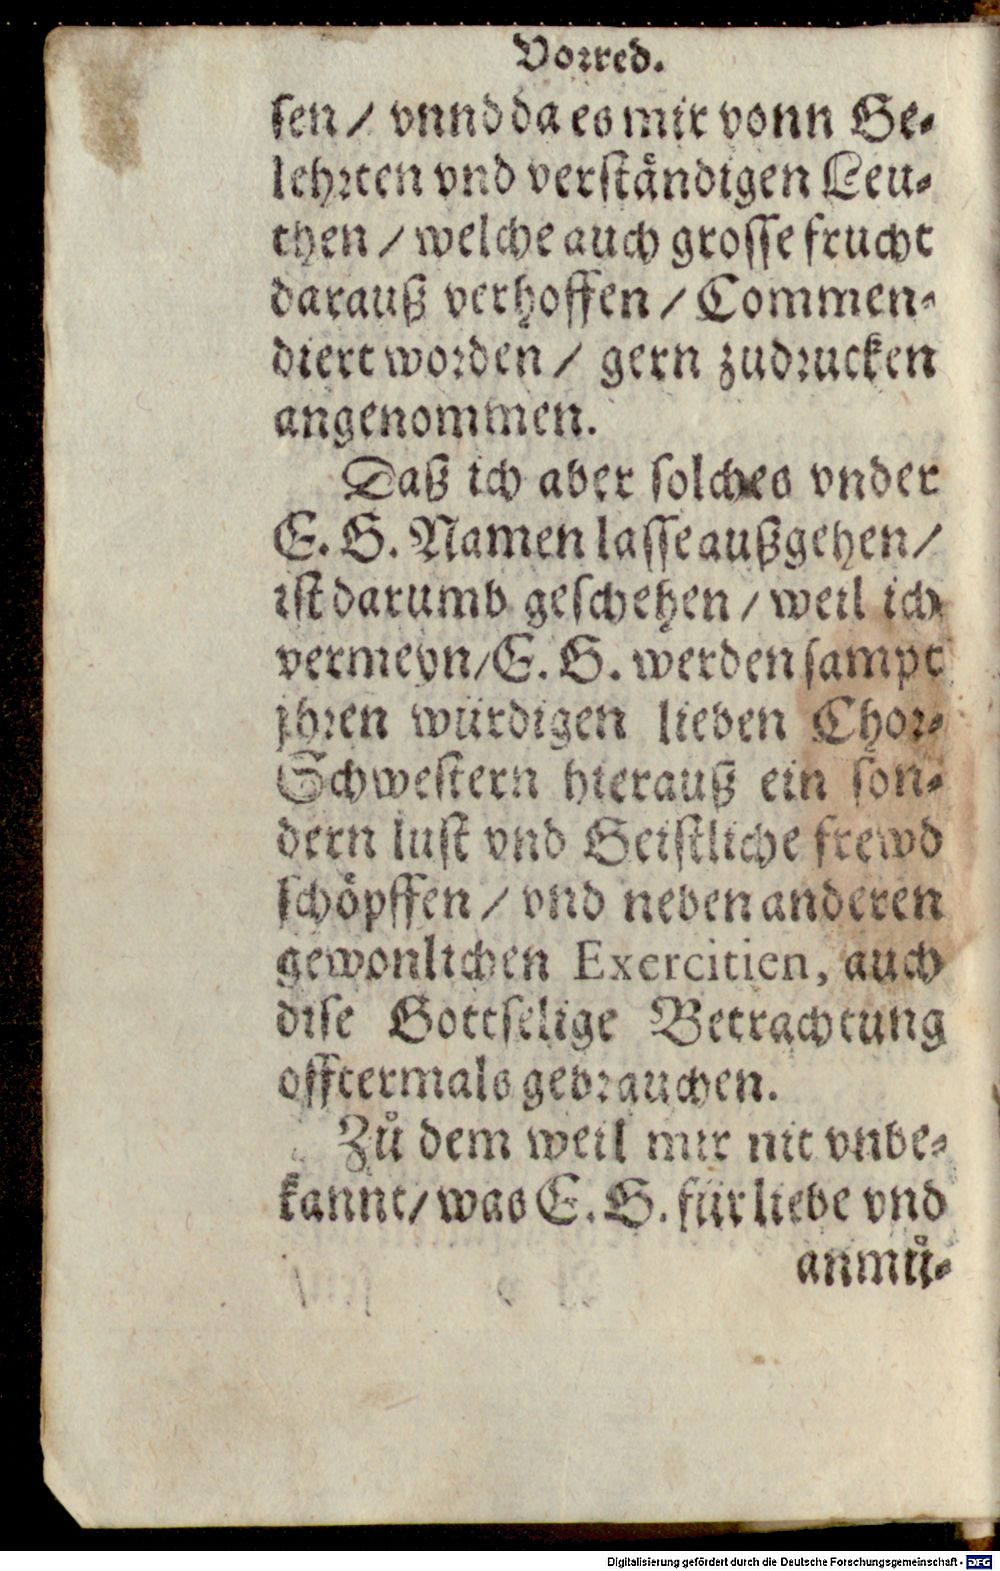 Vorred.
sen / vnnd da es mir vonn Ge-
lehrten vnd verständigen Leu-
then / welche auch grosse frucht
darauß verhoffen / Commen-
diert worden / gern zudrucken
angenommen.
Daß ich aber solches vnder
E. G. Namen lasse außgehen /
ist darumb geschehen / weil ich
vermeyn / E. G. werden sampt
jhren würdigen lieben Chor-
Schwestern hierauß ein son-
dern lust vnd Geistliche frewd
schöpffen / vnd neben anderen
gewonlichen Exercitien, auch
dise Gottselige Betrachtung
offtermals gebrauchen.
Zů dem weil mir nit vnbe-
kannt / was E. G. für liebe vnd
anmů-
Digitalisierung gefördert durch die Deutsche Forschungsgemeinschaft - DFG